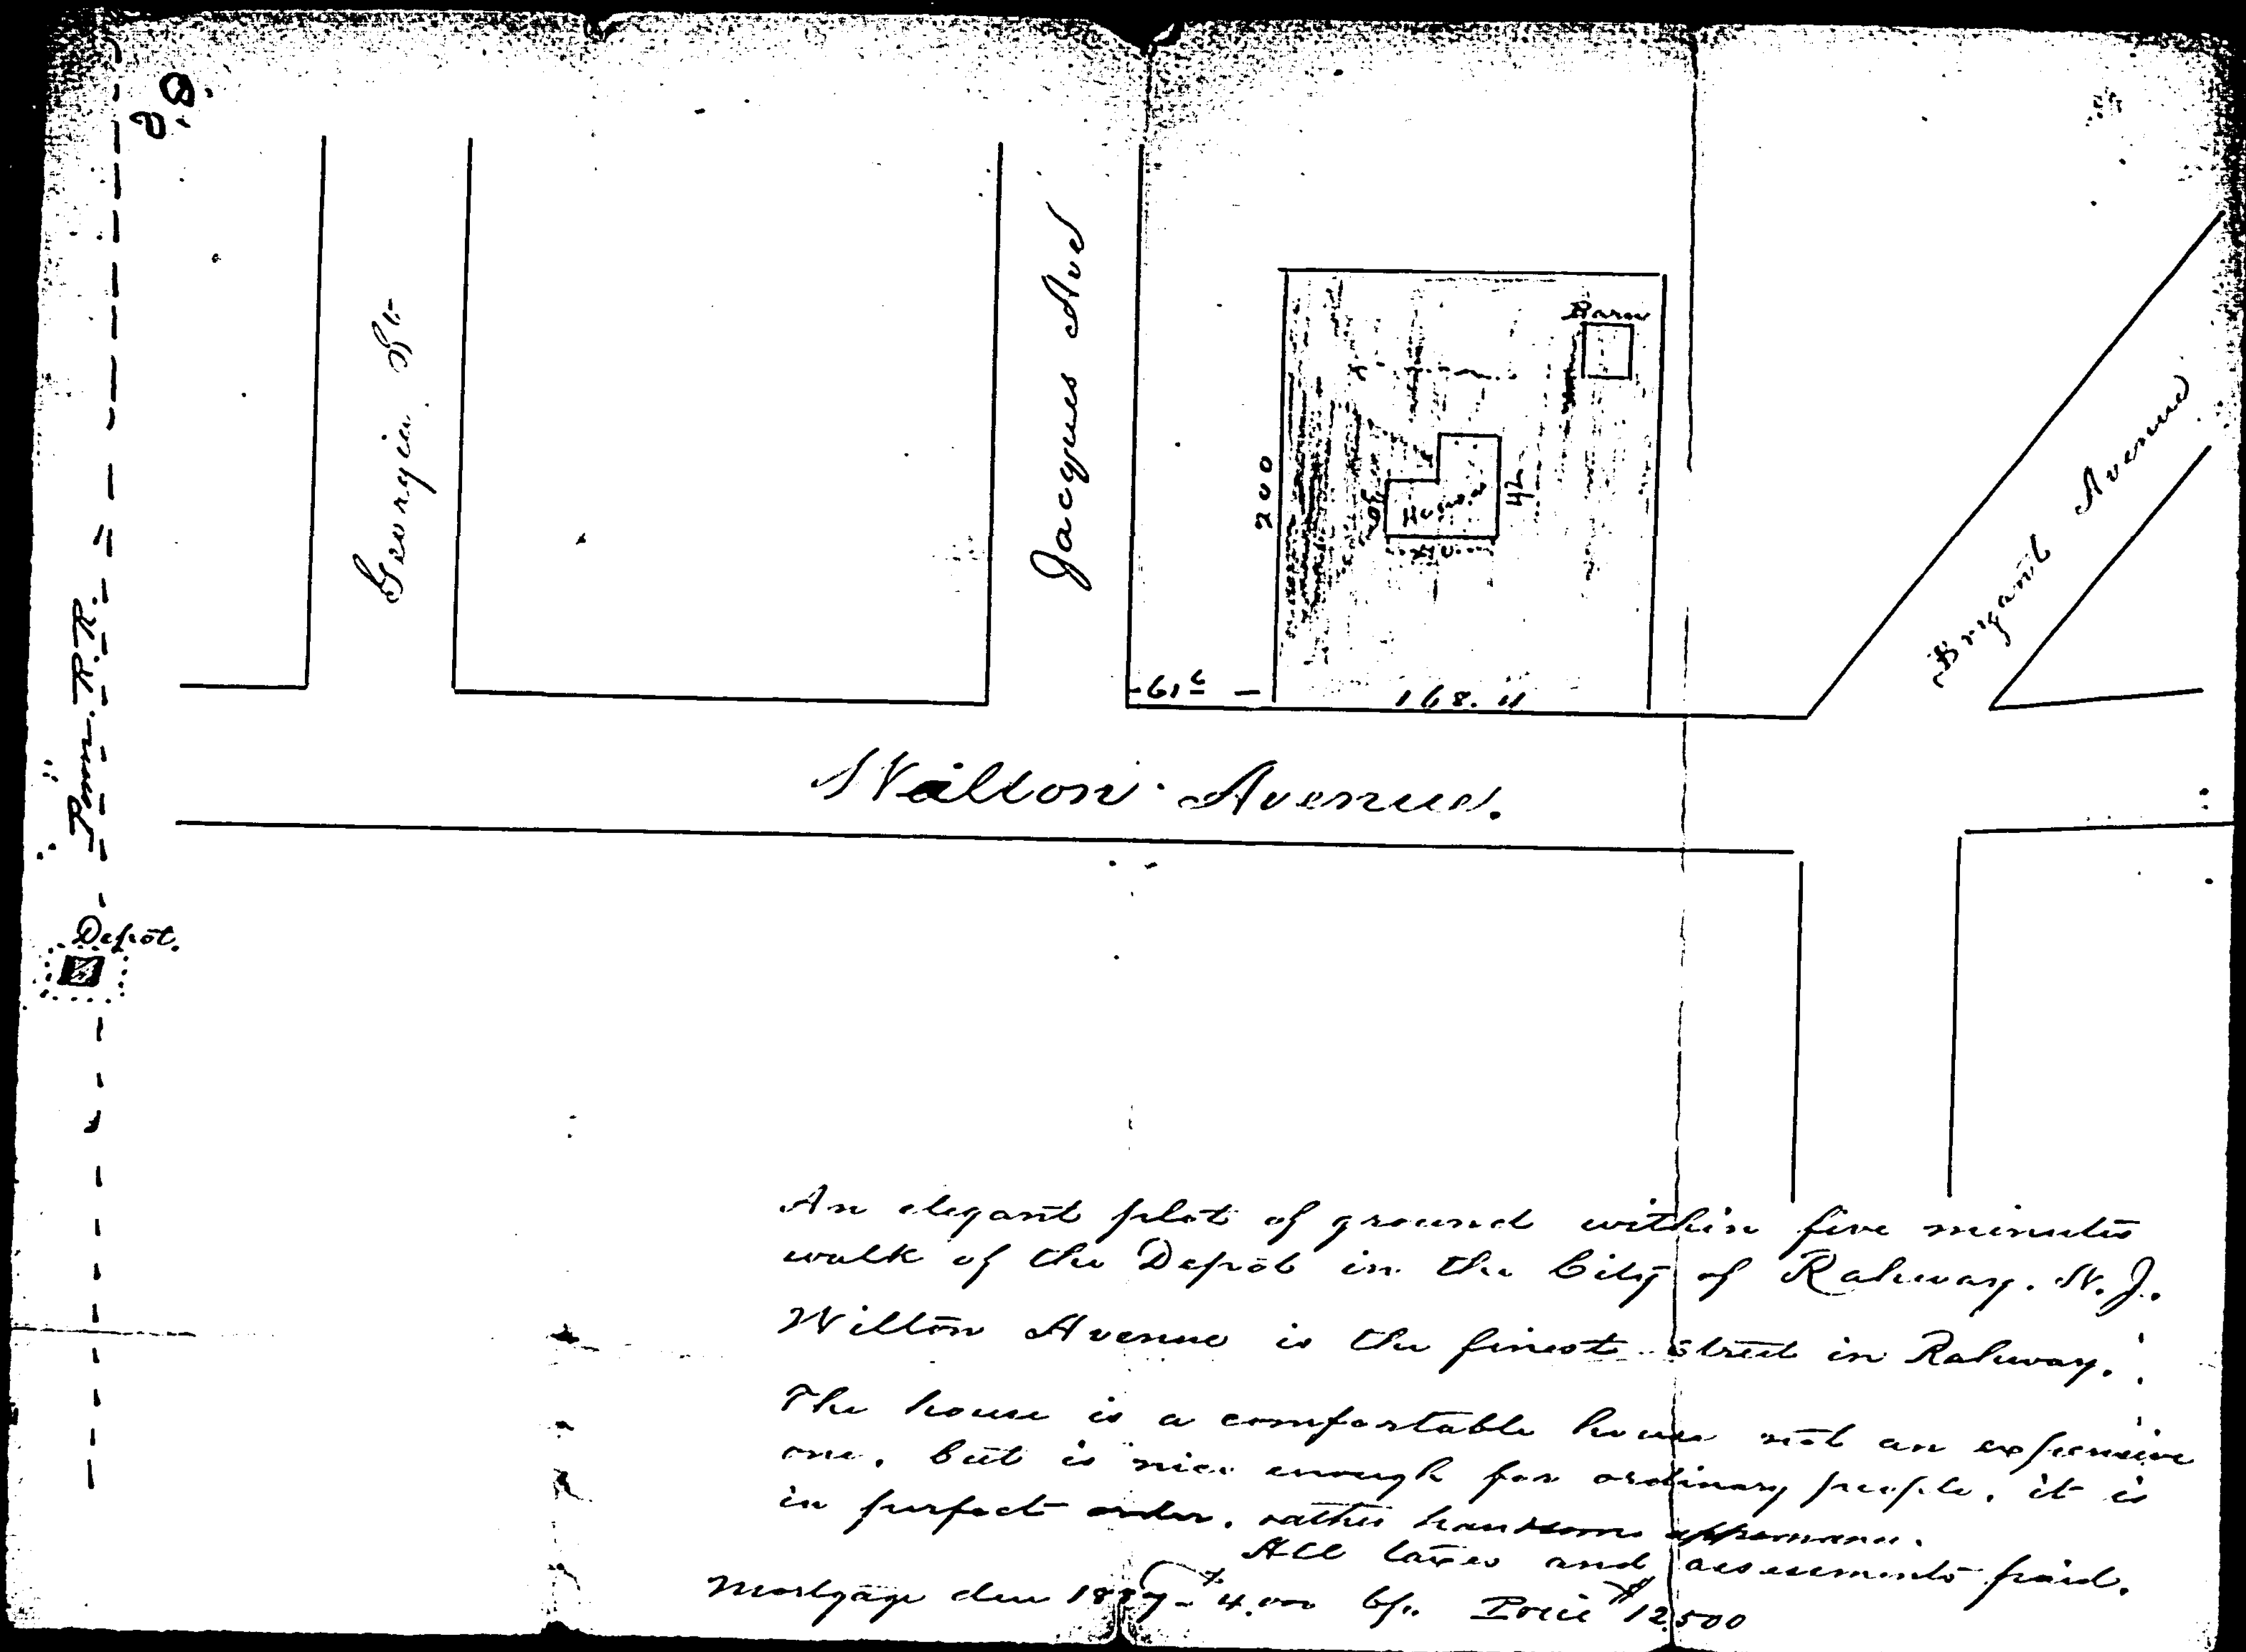 Georgia St.
Jacques Ave
Barn
House
200
42
61 6
168. 11
Bryant Avenue
Wilton Avenue.
Penn. R. R.
Depot.
An elegant plot of ground within five minutes
walk of the Depot in the City of Rahway. N. J.
Wilton Avenue is the finest street in Rahway.
The house is a comfortable house not an expensive
one, but is nice enough for ordinary people, it is
in perfect order, rather handsome appearance.
All taxes and assessments paid.
Mortgage due $4.000 Price $12,500